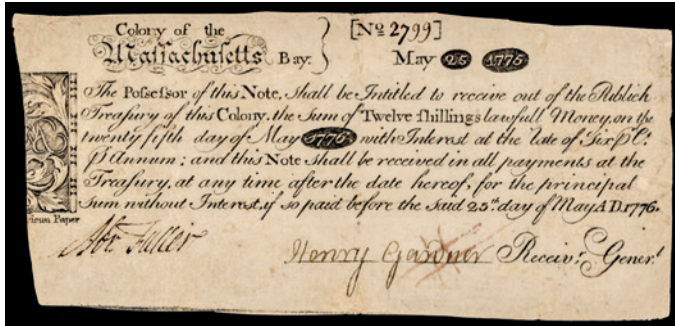 Colony of the
Massachusetts Bay.
[No 2799]
May 25 1775
The Possessor of this Note, shall be Intitled to receive out of the Publick
Treasury of this Colony, the Sum of Twelve shillings lawfull Money, on the
twenty fifth day of May 1776 with Interest at the Rate of Six P Ct.
P Annum; and this Note Shall be received in all payments at the
Treasury, at any time after the date hereof, for the principal
Sum without Interest, if so paid before the Said 25th. day of May A D. 1776.
rican Paper
Abr. Fuller
Henry Gardner Receivr. Generl.